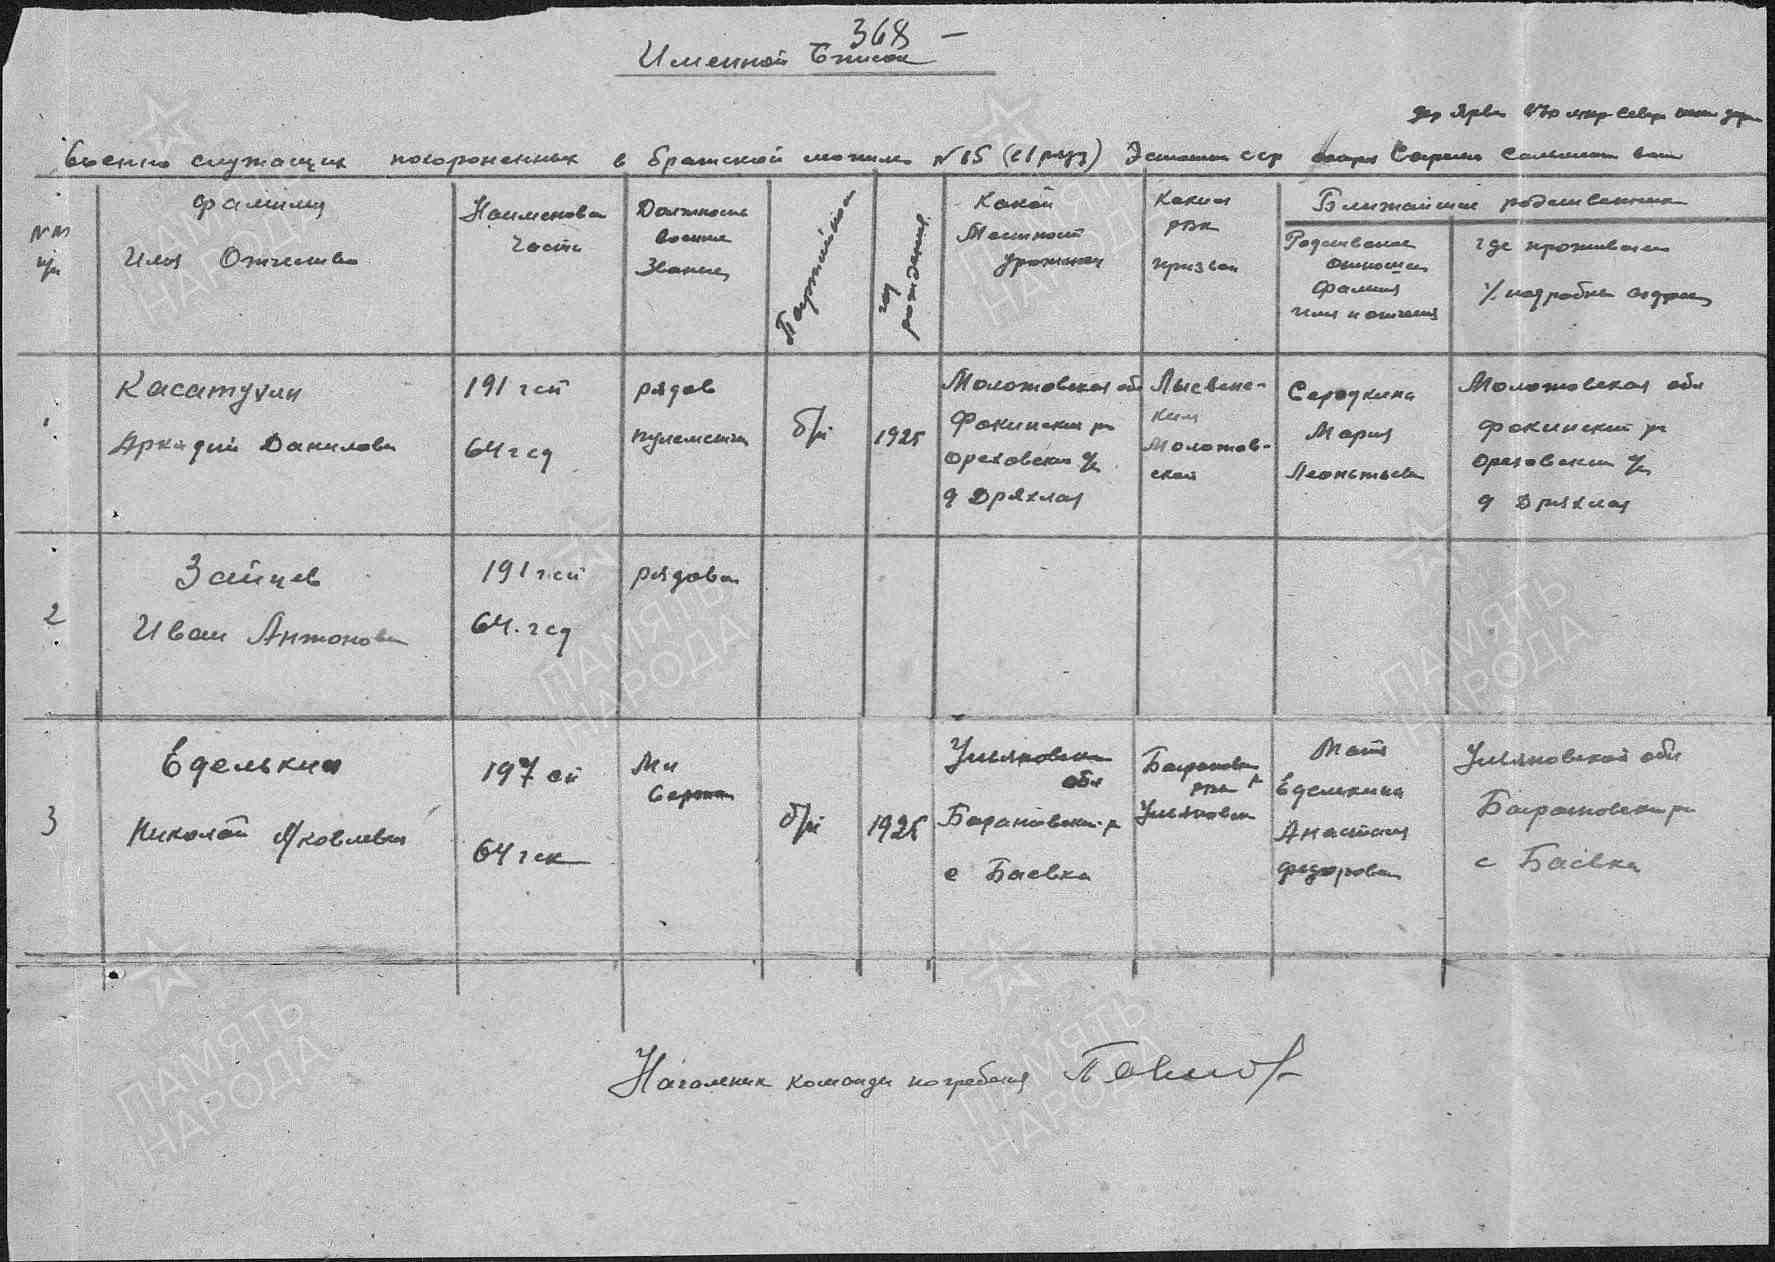 368 –
Именной Список
дер Ярве
Военно служащих похороненных в братской могиле №15 (21 ряд) Эстонская сср
NN
п/п
Фамилия
Имя Отчество
Наименова
Части
Должность
военное
Звание
Партийность
год рождения
Какой
Местности
уроженец
Каким
РВК
призван
Ближайшие родственник
Родственное
отношен
Фамилия
имя и отчеств
где проживает
Касатухин
Аркадий Данилови
191 гсп
64 гсд
рядов
пулеметчи
б/п
1925
Молотовская обл
Фокинский р
Ореховский
д Дряхлая
Лысвенс-
ким
Молотов-
ской
Середкина
Мария
Леонтьев
Молотовская обл
Фокинский р
Ореховский
д Дряхлая
2
Зайцев
Иван Антонови
191 гсп
64. гсд
рядовой
3
Еделькин
Николай Яковлеви
197 сп
64 гск
Мл
Сержан
б/п
1925
Ульяновская
обл
Барановский р
с Баевка
Барановск
рвк
Ульяновск
Мать
Еделькина
Анастасия
Федоровн
Ульяновской обл
Барановский р
с Баевка
Начальник команды погребения
ПАМЯТЬ
НАРОДА